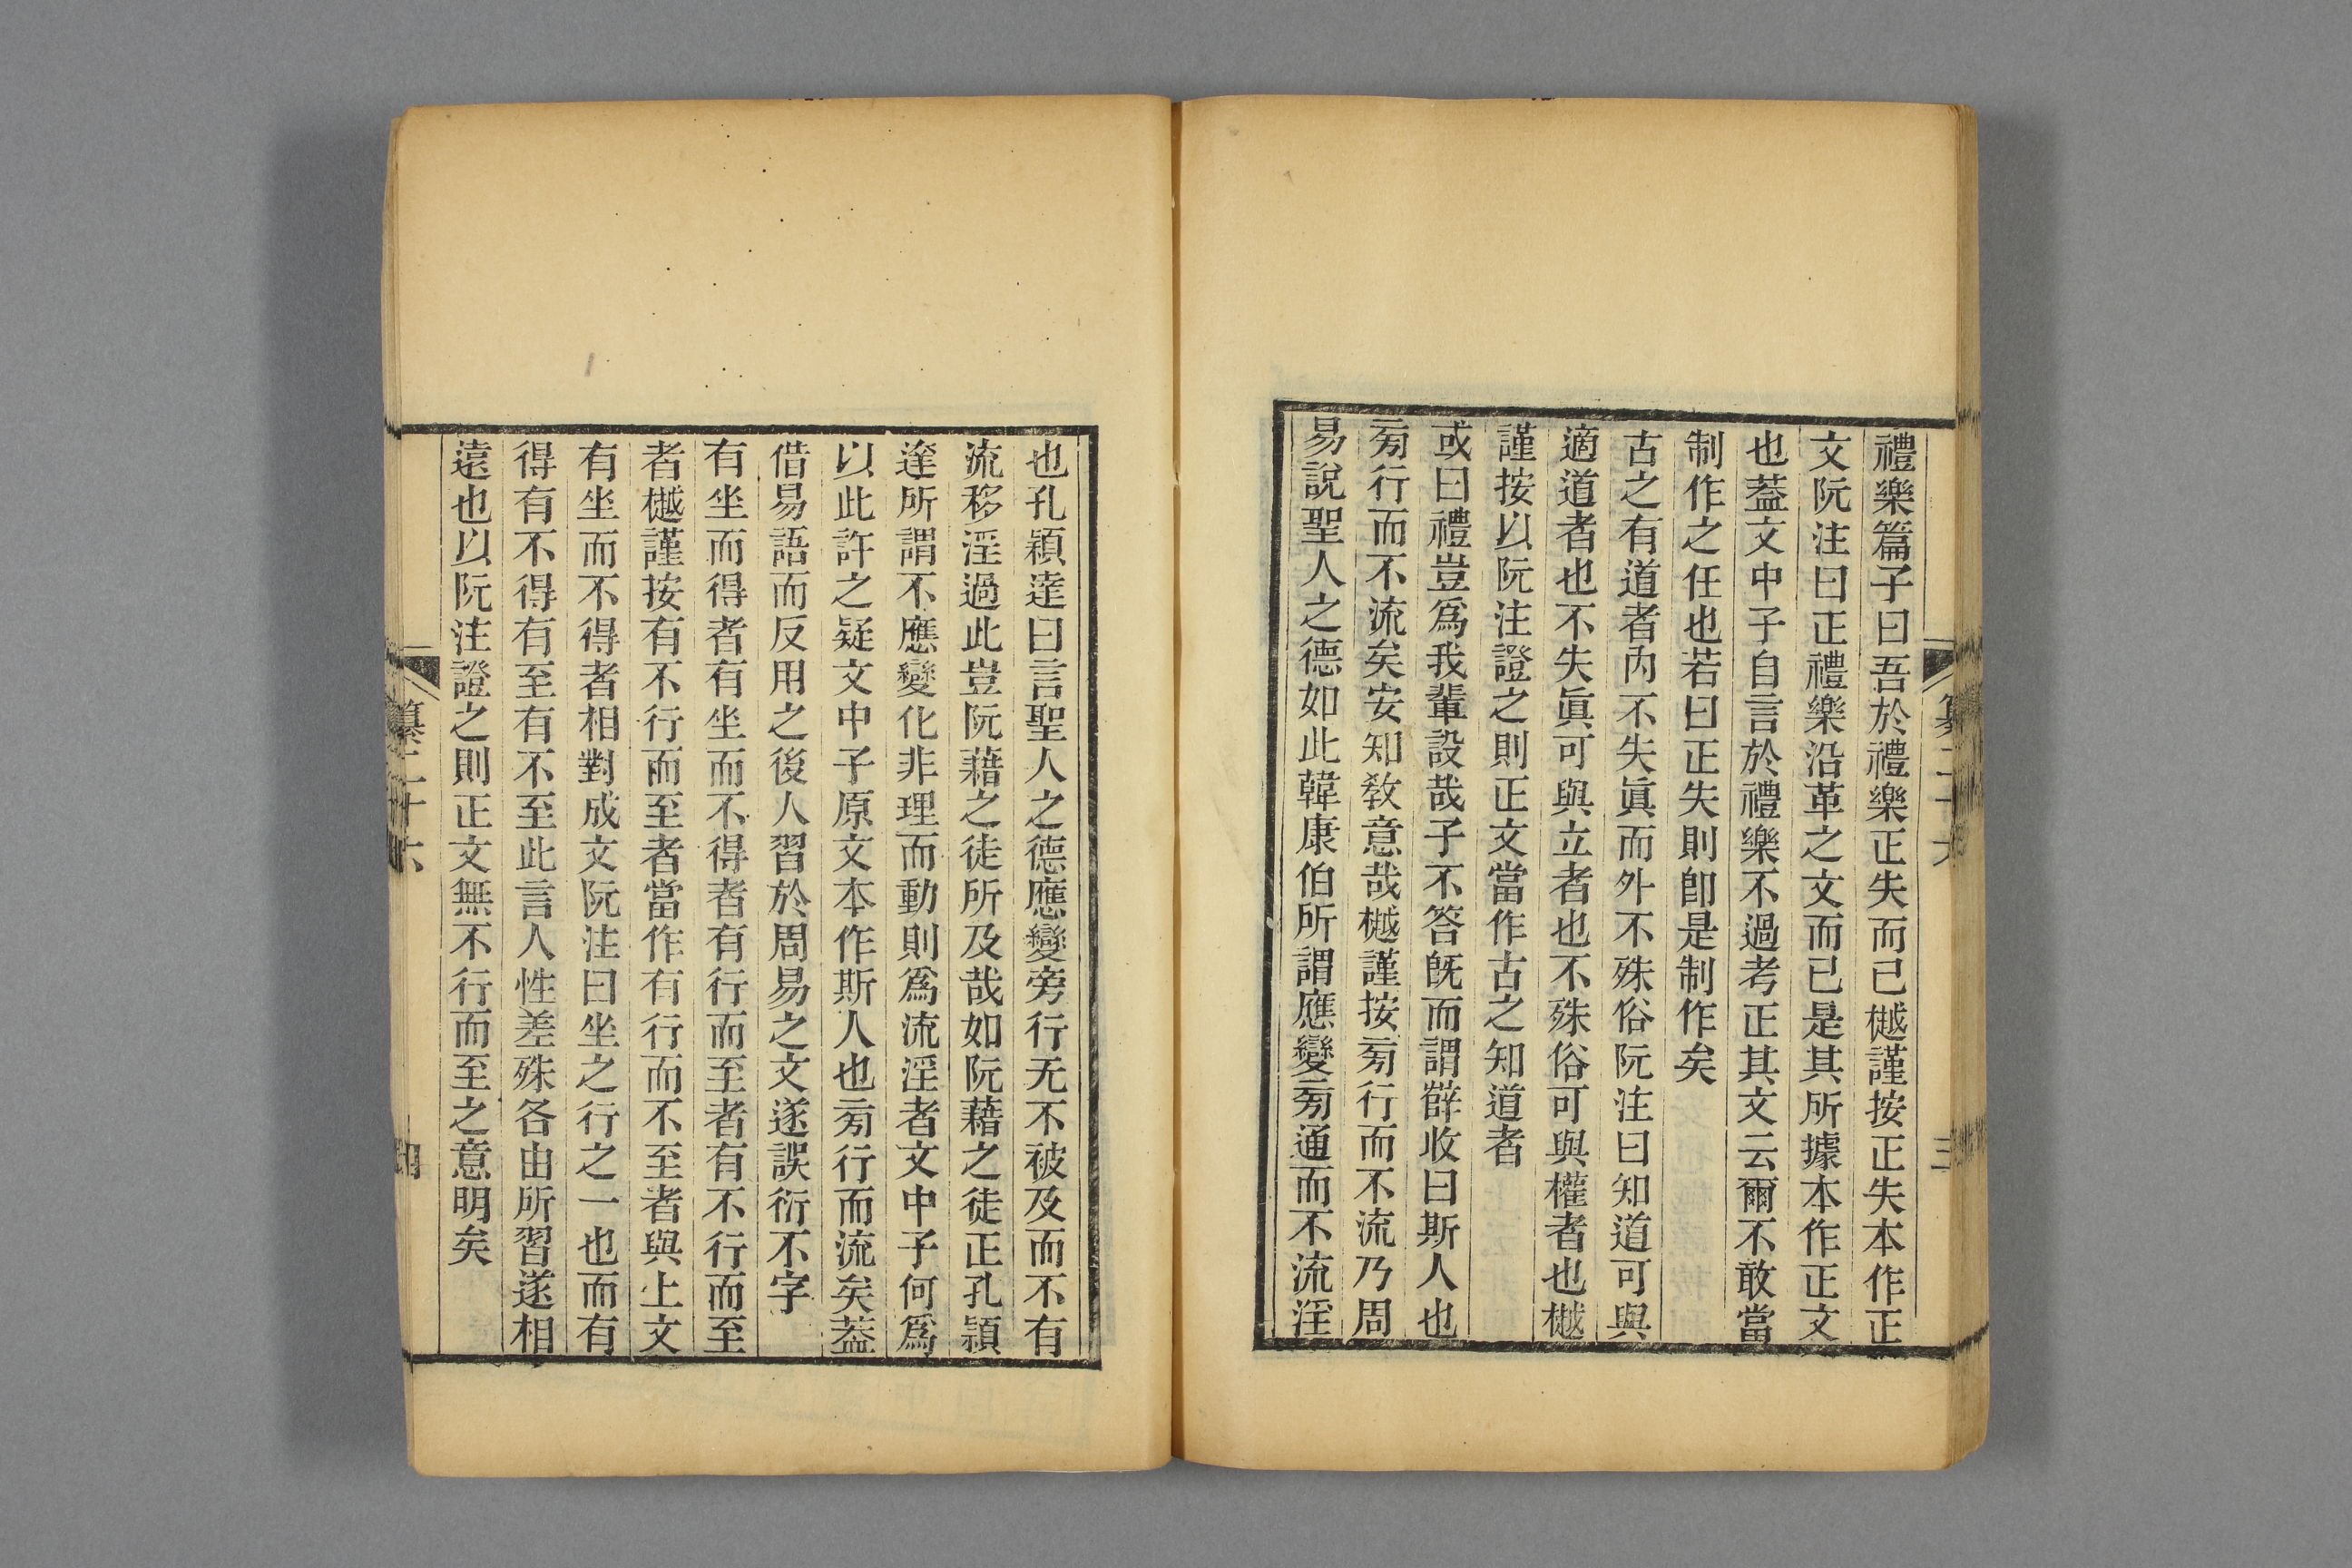 禮樂篇子曰吾於禮樂正失而已樾謹按正失本作正
文阮注曰正禮樂沿革之文而已是其所據本作正文
也葢文中子自言於禮樂不過考正其文云爾不敢當
制作之任也若曰正失則卽是制作矣
古之有道者內不失眞而外不殊俗阮注曰知道可與
適道者也不失眞可與立者也不殊俗可與權者也樾
謹按以阮注證之則正文當作古之知道者
或曰禮豈爲我輩設哉子不答旣而謂薛收曰斯人也
旁行而不流矣安知敎意哉樾謹按旁行而不流乃周
易說聖人之德如此韓康伯所謂應變旁通而不流淫
纂二十六
三
也孔穎達曰言聖人之德應變旁行无不被及而不有
流移淫過此豈阮藉之徒所及哉如阮藉之徒正孔穎
達所謂不應變化非理而動則爲流淫者文中子何爲
以此許之疑文中子原文本作斯人也旁行而流矣葢
借易語而反用之後人習於周易之文遂誤衍不字
有坐而得者有坐而不得者有行而至者有不行而至
者樾謹按有不行而至者當作有行而不至者與上文
有坐而不得者相對成文阮注曰坐之行之一也而有
得有不得有至有不至此言人性差殊各由所習遂相
遠也以阮注證之則正文無不行而至之意明矣
纂二十六
四